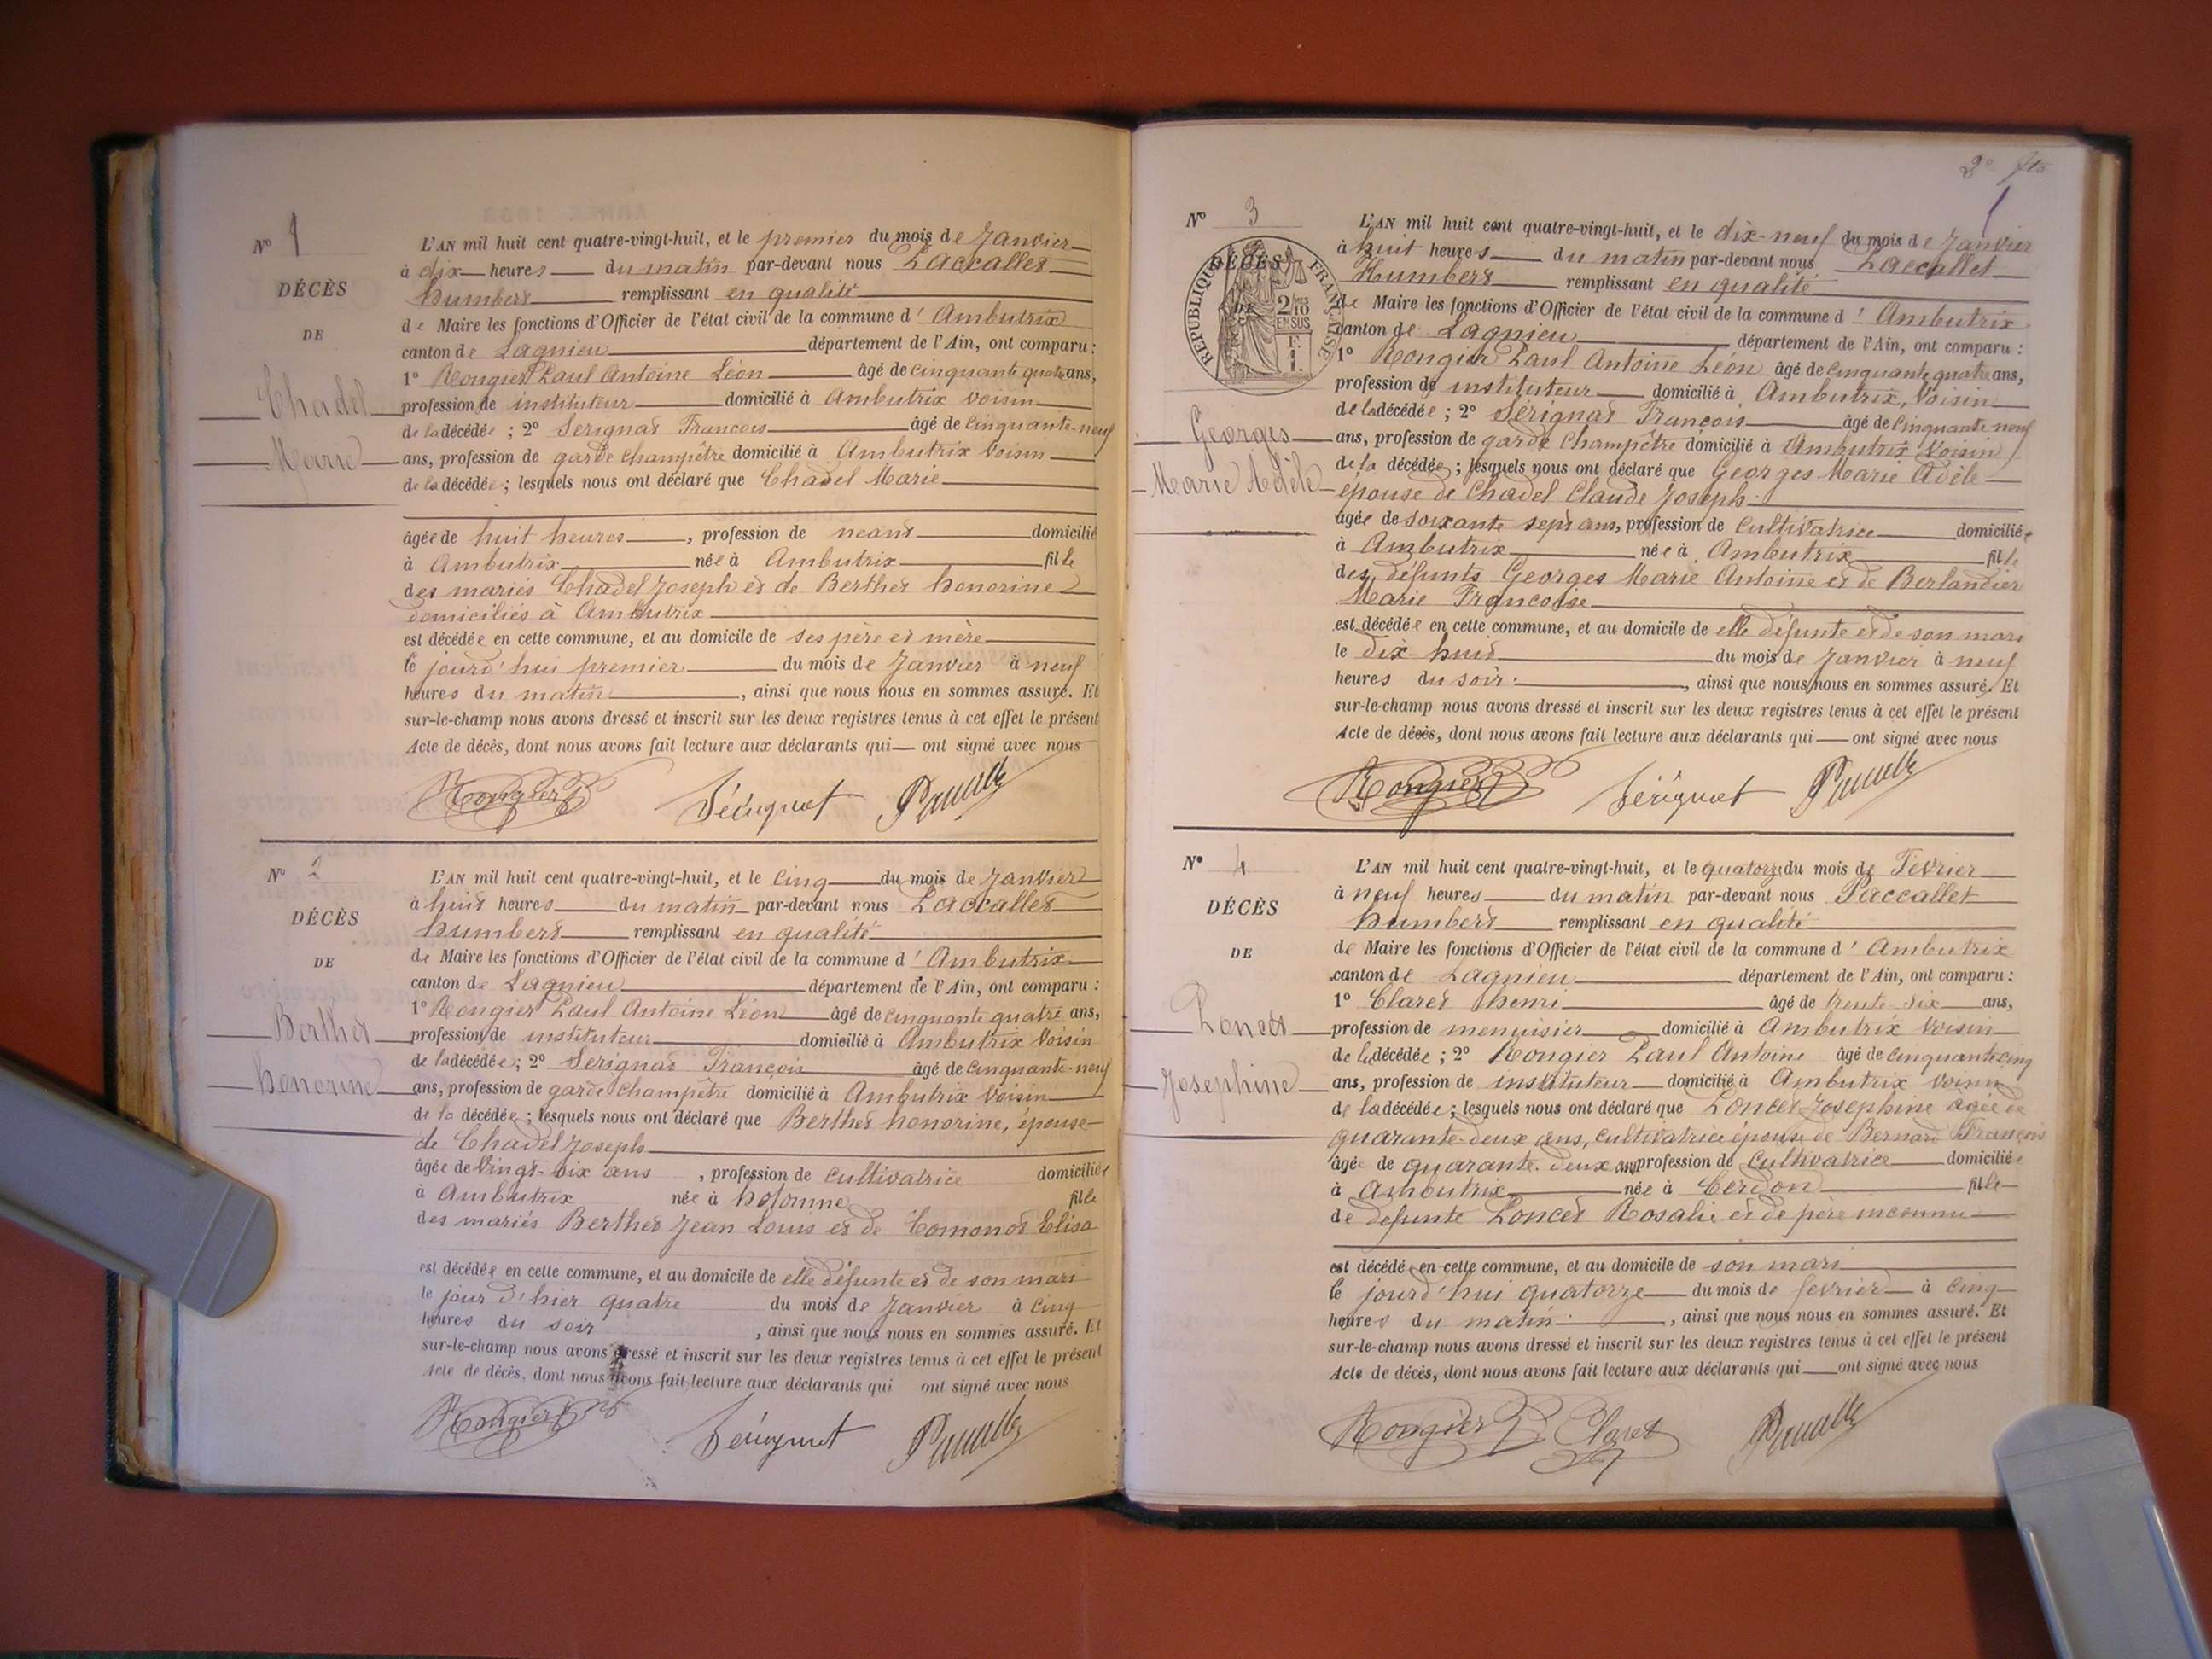 Nº 1
DÉCÈS
DE
Chadel
Marie
L'AN mil huit cent quatre-vingt-huit, et le premier du mois de Janvier
à dix heures du matin par-devant nous Paccallet
humbert remplissant en qualité
de Maire les fonctions d'Officier de l'état civil de la commune d' Ambutrix
canton de Lagnieu département de l'Ain, ont comparu :
1º Rongier Paul Antoine Léon âgé de cinquante quatre ans,
profession de instituteur domicilié à Ambutrix voisin
de la décédée ; 2º Serignat Francois âgé de cinquante-neuf
ans, profession de garde champêtre domicilié à Ambutrix Voisin
de la décédée ; lesquels nous ont déclaré que Chadel Marie
âgée de huit heures , profession de neant domicilié
à Ambutrix née à Ambutrix fille
des mariés Chadel Joseph et de Berthet honorine
domiciliés à Ambutrix
est décédée en cette commune, et au domicile de ses père et mère
le jourd'hui premier du mois de Janvier à neuf
heures du matin , ainsi que nous nous en sommes assuré. Et
sur-le-champ nous avons dressé et inscrit sur les deux registres tenus à cet effet le présent
Acte de décès, dont nous avons fait lecture aux déclarants qui ont signé avec nous
Rongier Sérignat Paccallet
Nº 2
DÉCÈS
DE
Berthet
honorine
L'AN mil huit cent quatre-vingt-huit, et le cinq du mois de Janvier
à huit heures du matin par-devant nous Paccallet
humbert remplissant en qualité
de Maire les fonctions d'Officier de l'état civil de la commune d' Ambutrix
canton de Lagnieu département de l'Ain, ont comparu :
1º Rongier Paul Antoine Léon âgé de cinquante quatre ans,
profession de instituteur domicilié à Ambutrix Voisin
de la décédée ; 2º Serignat Francois âgé de cinquante-neuf
ans, profession de garde Champêtre domicilié à Ambutrix Voisin
de la décédée ; lesquels nous ont déclaré que Berthet honorine, épouse
de Chadel Joseph
âgée de Vingt-six ans , profession de cultivatrice domiciliée
à Ambutrix née à hotonne fille
des mariés Berthet Jean Louis et de Elisa
est décédée en cette commune, et au domicile de elle défunte et de son mari
le jour d'hier quatre du mois de Janvier à cinq
heures du soir , ainsi que nous nous en sommes assuré. Et
sur-le-champ nous avons dressé et inscrit sur les deux registres tenus à cet effet le présent
Acte de décès, dont nous avons fait lecture aux déclarants qui ont signé avec nous
Rongier Sérignat Paccallet
2e
Nº 3
DÉCÈS
DE
RÉPUBLIQUE FRANÇAISE
2/10 EN SUS
F. 1.
Georges
Marie Adèle
L'AN mil huit cent quatre-vingt-huit, et le dix-neuf du mois de Janvier
à huit heures du matin par-devant nous Paccallet
Humbert remplissant en qualité
de Maire les fonctions d'Officier de l'état civil de la commune d' Ambutrix
canton de Lagnieu département de l'Ain, ont comparu :
1º Rongier Paul Antoine Léon âgé de cinquante quatre ans,
profession de instituteur domicilié à Ambutrix, Voisin
de la décédée ; 2º Sérignat François âgé de cinquante neuf
ans, profession de garde Champêtre domicilié à Ambutrix Voisin
de la décédée ; lesquels nous ont déclaré que Georges Marie Adèle
épouse de Chadel Claude Joseph
âgée de soixante sept ans, profession de Cultivatrice domiciliée
à Ambutrix née à Ambutrix fille
des défunts Georges Marie Antoine et de Berlandier
Marie Françoise
est décédée en cette commune, et au domicile de elle défunte et de son mari
le dix-huit du mois de Janvier à neuf
heures du soir , ainsi que nous nous en sommes assuré. Et
sur-le-champ nous avons dressé et inscrit sur les deux registres tenus à cet effet le présent
Acte de décès, dont nous avons fait lecture aux déclarants qui ont signé avec nous
Rongier Sérignat Paccallet
Nº 4
DÉCÈS
DE
Poncet
Josephine
L'AN mil huit cent quatre-vingt-huit, et le quatorze du mois de Fevrier
à neuf heures du matin par-devant nous Paccallet
humbert remplissant en qualité
de Maire les fonctions d'Officier de l'état civil de la commune d' Ambutrix
canton de Lagnieu département de l'Ain, ont comparu :
1º Claret henri âgé de trente-six ans,
profession de menuisier domicilié à Ambutrix Voisin
de la décédée ; 2º Rongier Paul Antoine âgé de cinquante cinq
ans, profession de instituteur domicilié à Ambutrix voisin
de la décédée ; lesquels nous ont déclaré que Poncet Josephine agée de
quarante-deux ans, cultivatrice épouse de Bernard François
âgée de quarante-deux ans profession de Cultivatrice domiciliée
à Ambutrix née à Cerdon fille
de defunte Poncet Rosalie et de père inconnu
est décédé en cette commune, et au domicile de son mari
le jourd'hui quatorze du mois de fevrier à cinq
heures du matin , ainsi que nous nous en sommes assuré. Et
sur-le-champ nous avons dressé et inscrit sur les deux registres tenus à cet effet le présent
Acte de décès, dont nous avons fait lecture aux déclarants qui ont signé avec nous
Rongier Claret Paccallet